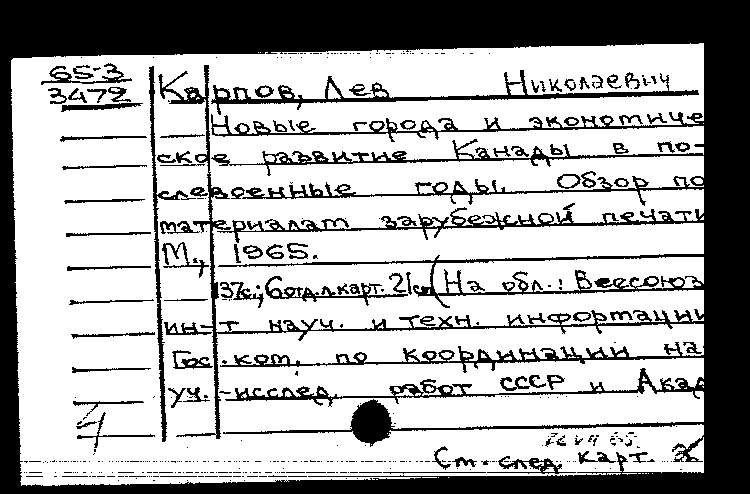 65-3
3472
Карпов, Лев Николаевич
Новые города и экономиче-
ское развитие Канады в по-
слевоенные годы. Обзор по
материалам зарубежной печати
М., 1965.
137с.; 6 отд.л.карт. 21см (На обл.: Всесоюз
ин-т науч. и техн. информации
Гос. ком. по координации на-
уч.-исслед. работ СССР и Акад
4
VII 65.
См. след. карт.